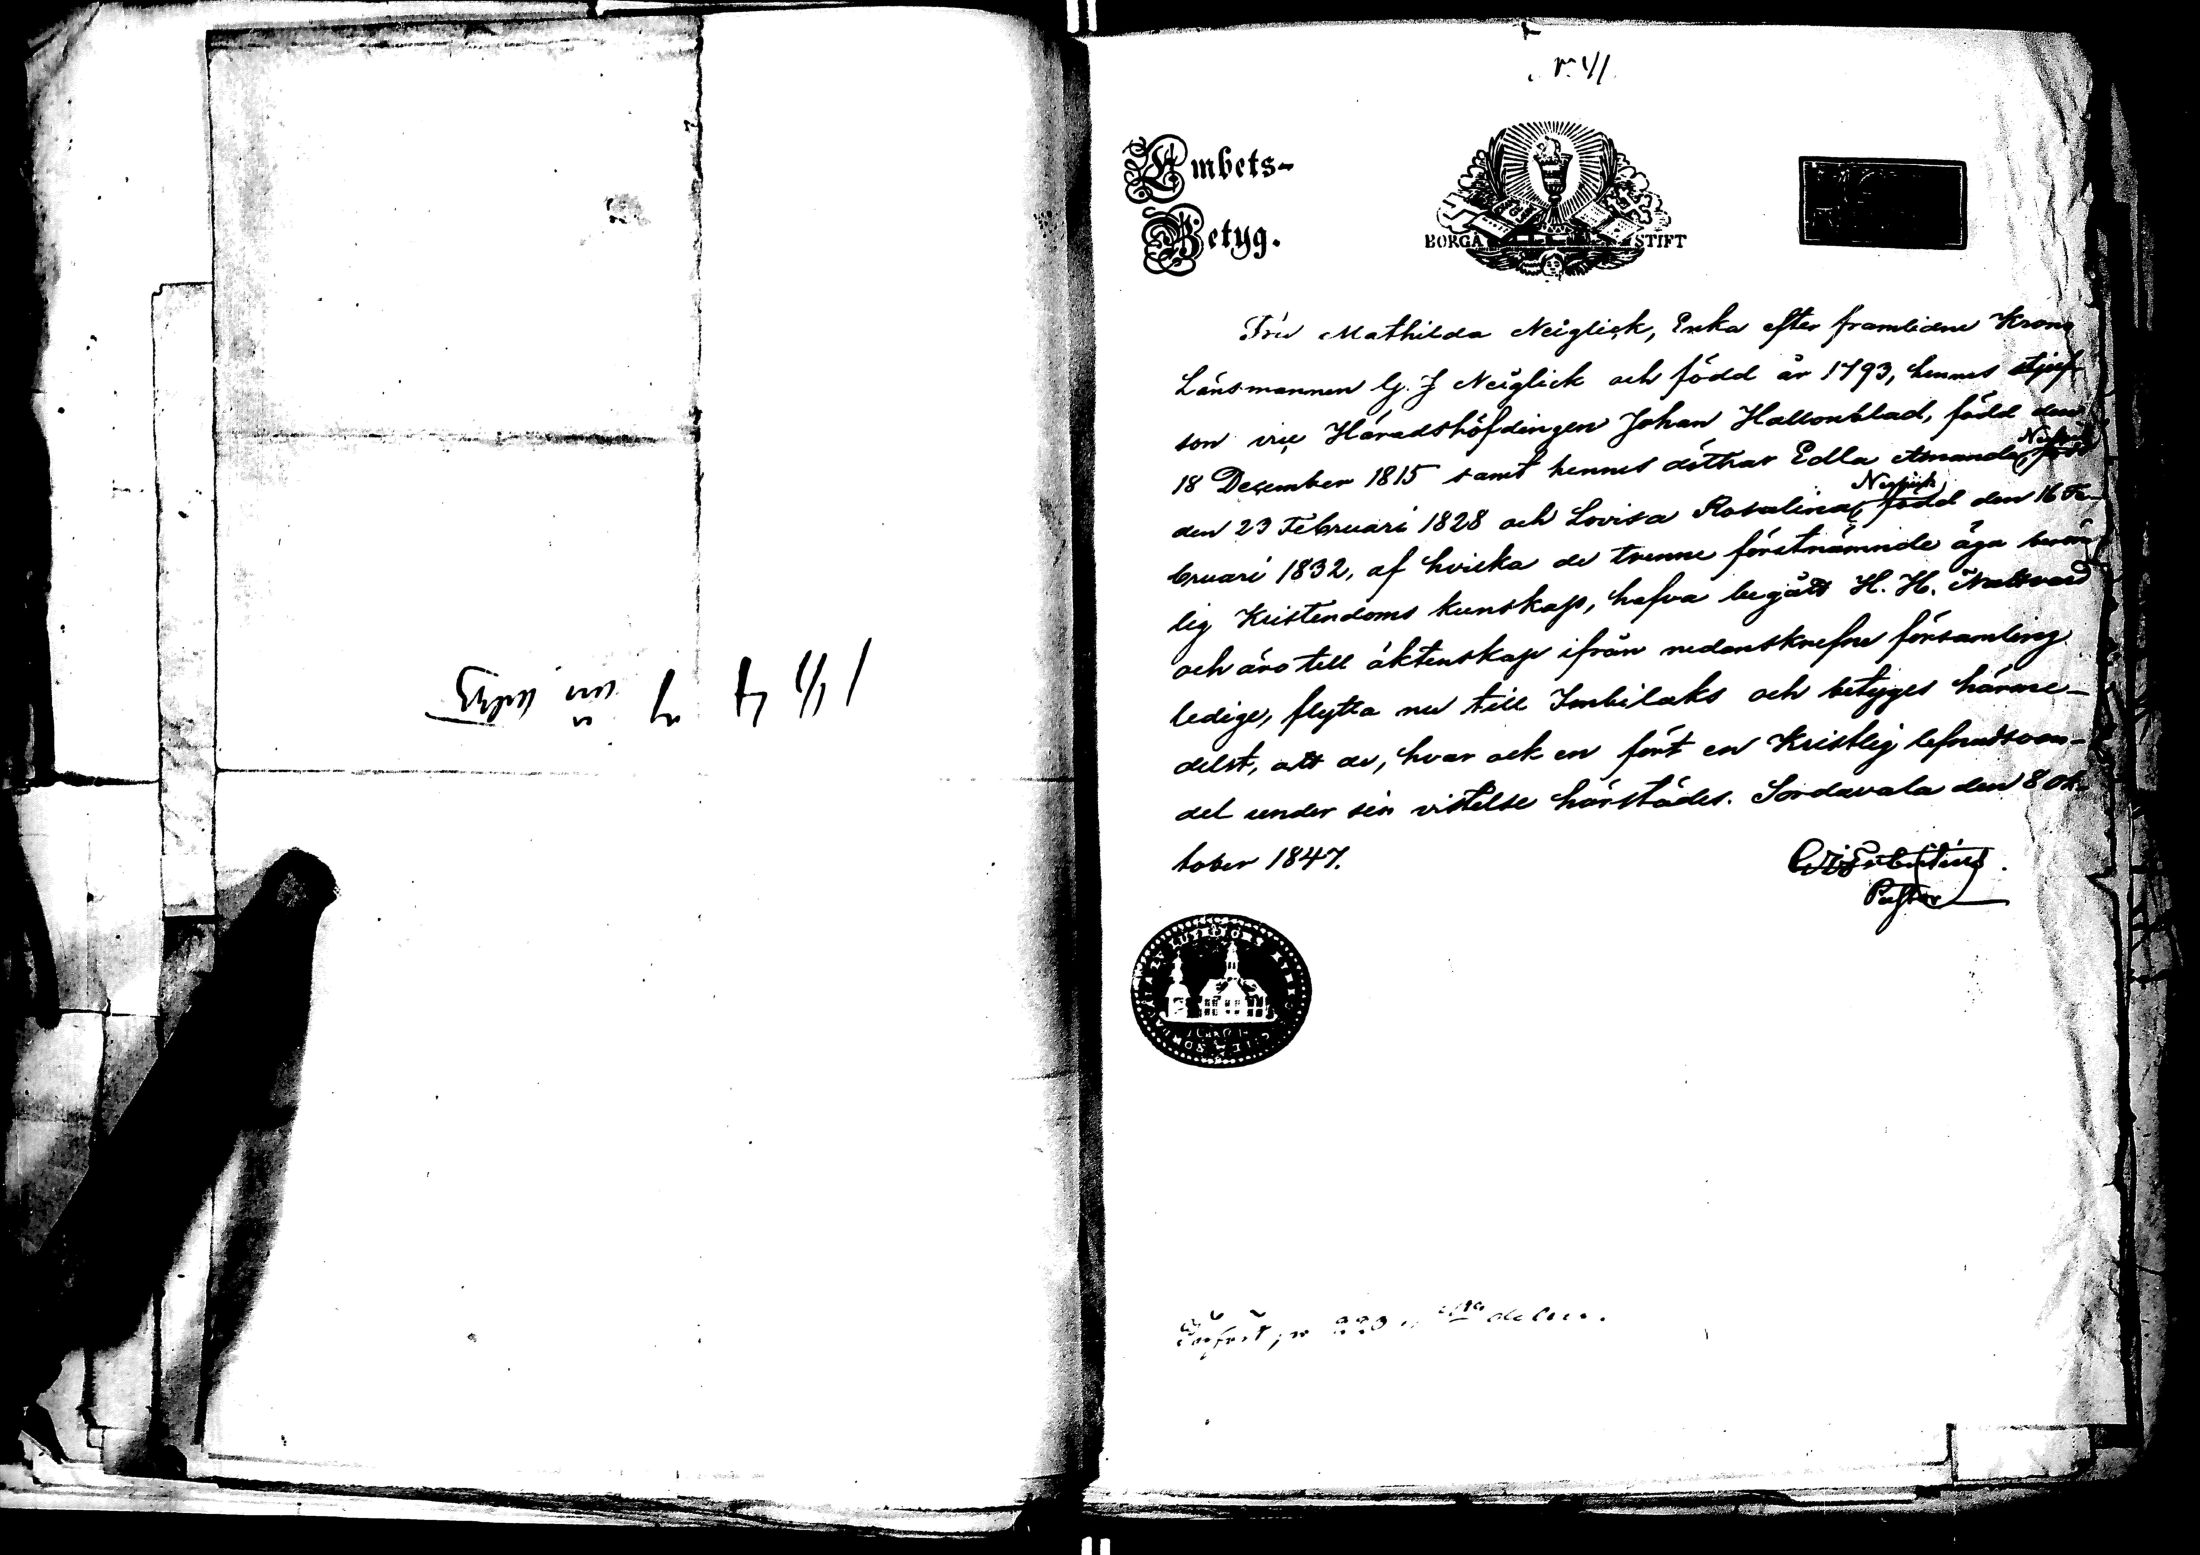 Embets-
Betyg.
BORGÅ STIFT
Fru Mathilda Neiglick, Enka efter framlidne Krono
Länsmannen G. J Neiglick och född år 1793, hennes stjuf-
son vice Häradshöfdingen Johan Hallonblad, född den
18 December 1815 samt hennes döttrar Edla Amanda Neiglick född
den 23 Februari 1828 och Lovisa Rosalina Neiglick född den 16 Fe-
bruari 1832, af hvilka de trenne förstnämnde äga
lig Kristendoms kunskap, hafva begått H. H. Nattvard
och äro till äktenskap ifrån nedanskrefne församling
ledige, flytta nu till Imbilaks och betyges härme-
delst, att de, hvar och en fört en Kristlig lefnadsvan-
del under sin vistelse härstädes. Sordavala den 8 Ok-
tober 1847.
Pastor